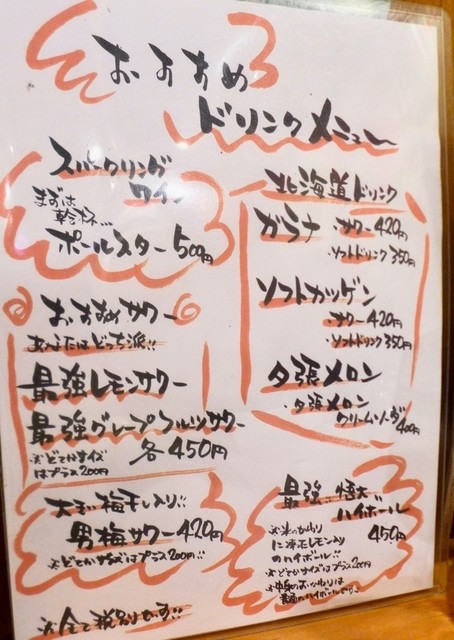 おすすめ
ドリンクメニュー
スパークリング
ワイン
まずは
乾杯…
ポールスター 500円
おすすめサワー
あなたはどっち派!!
最強レモンサワー
最強グレープフルーツサワー
各450円
※どでかサイズ
はプラス200円
大玉梅干し入り!!
男梅サワー 420円
※どでかサイズはプラス200円!!
※全て税別です!!
北海道ドリンク
ガラナ ・サワー 420円
・ソフトドリンク 350円
ソフトカツゲン
・サワー 420円
・ソフトドリンク 350円
夕張メロン
・夕張メロン
クリームソーダ 400円
最強!!悟大
ハイボール
450円
※氷のかわり
に凍結レモン入り
のハイボール!!
※どでかサイズはプラス200円
※中身のおかわりは